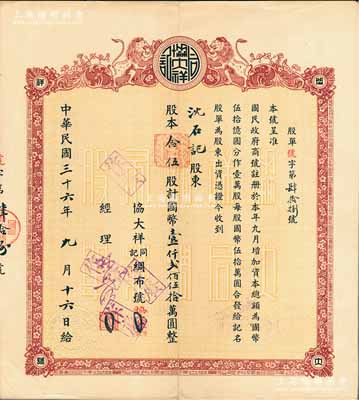 協大祥
股單號字第肆拾捌號
本號呈准
國民政府商號註册於本年九月增加資本總額為國幣
伍拾億圓分作壹萬股每股國幣伍拾萬圓合發給記名
股單為股東出資憑證今收到
沈石記股東
股本拾伍股計國幣
佰伍拾萬圓整
協大祥同記綢布號
經理
中華民國三十六年九月十六日給